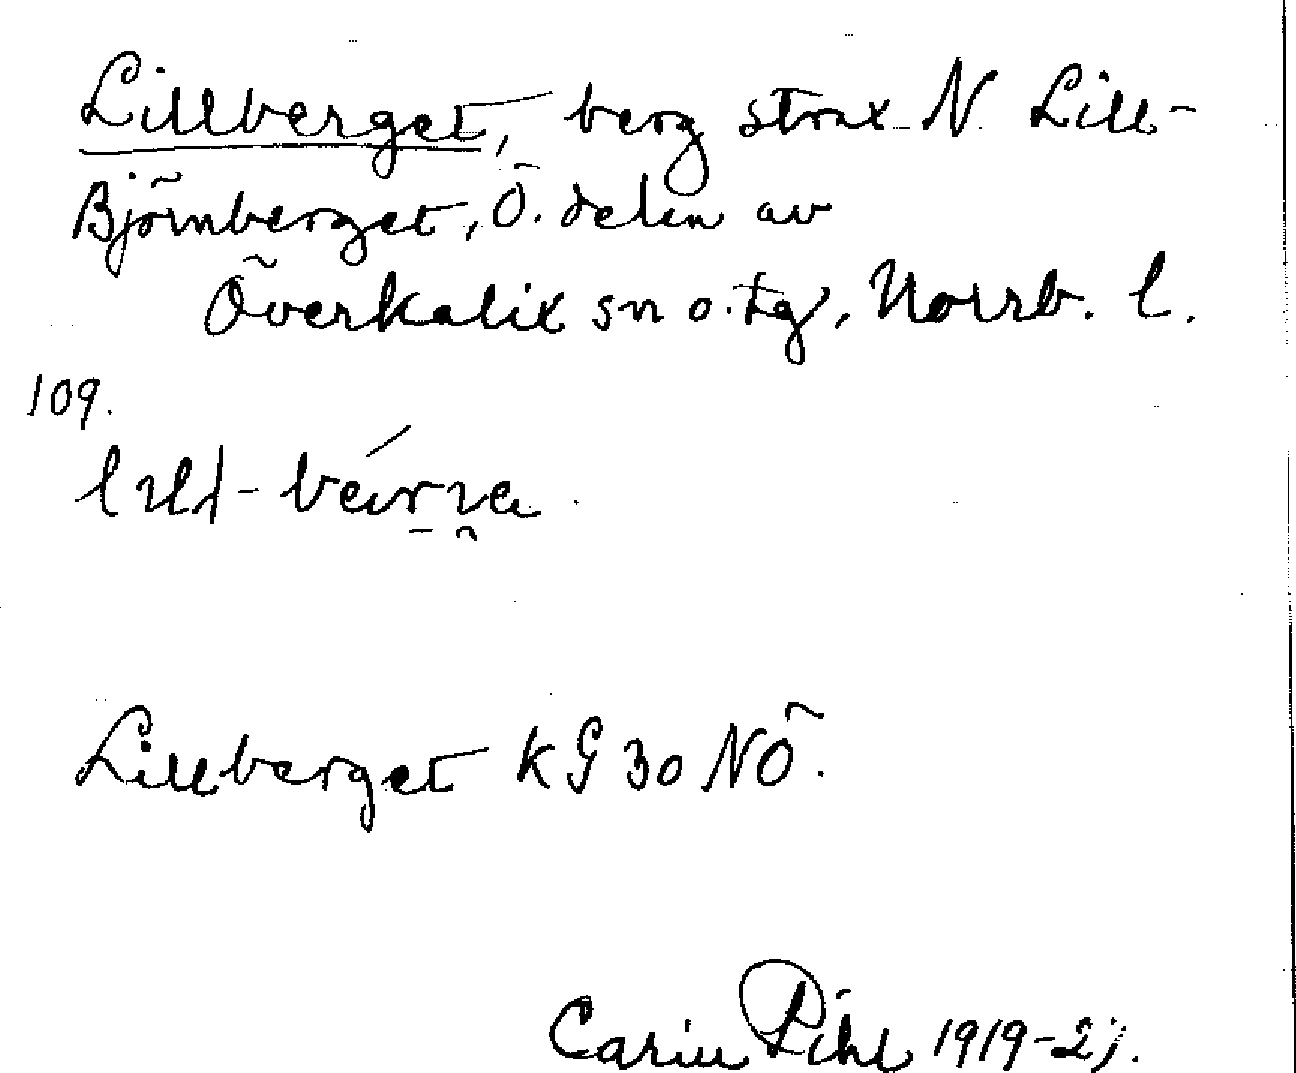 Lillberget, berg strax N. Lill-
Björnberget, Ö. delen av
Överkalix sn o. tg, Norrb. l.
109.
Lillberget KG 30 NÖ.
Carin Pihl 1919-2